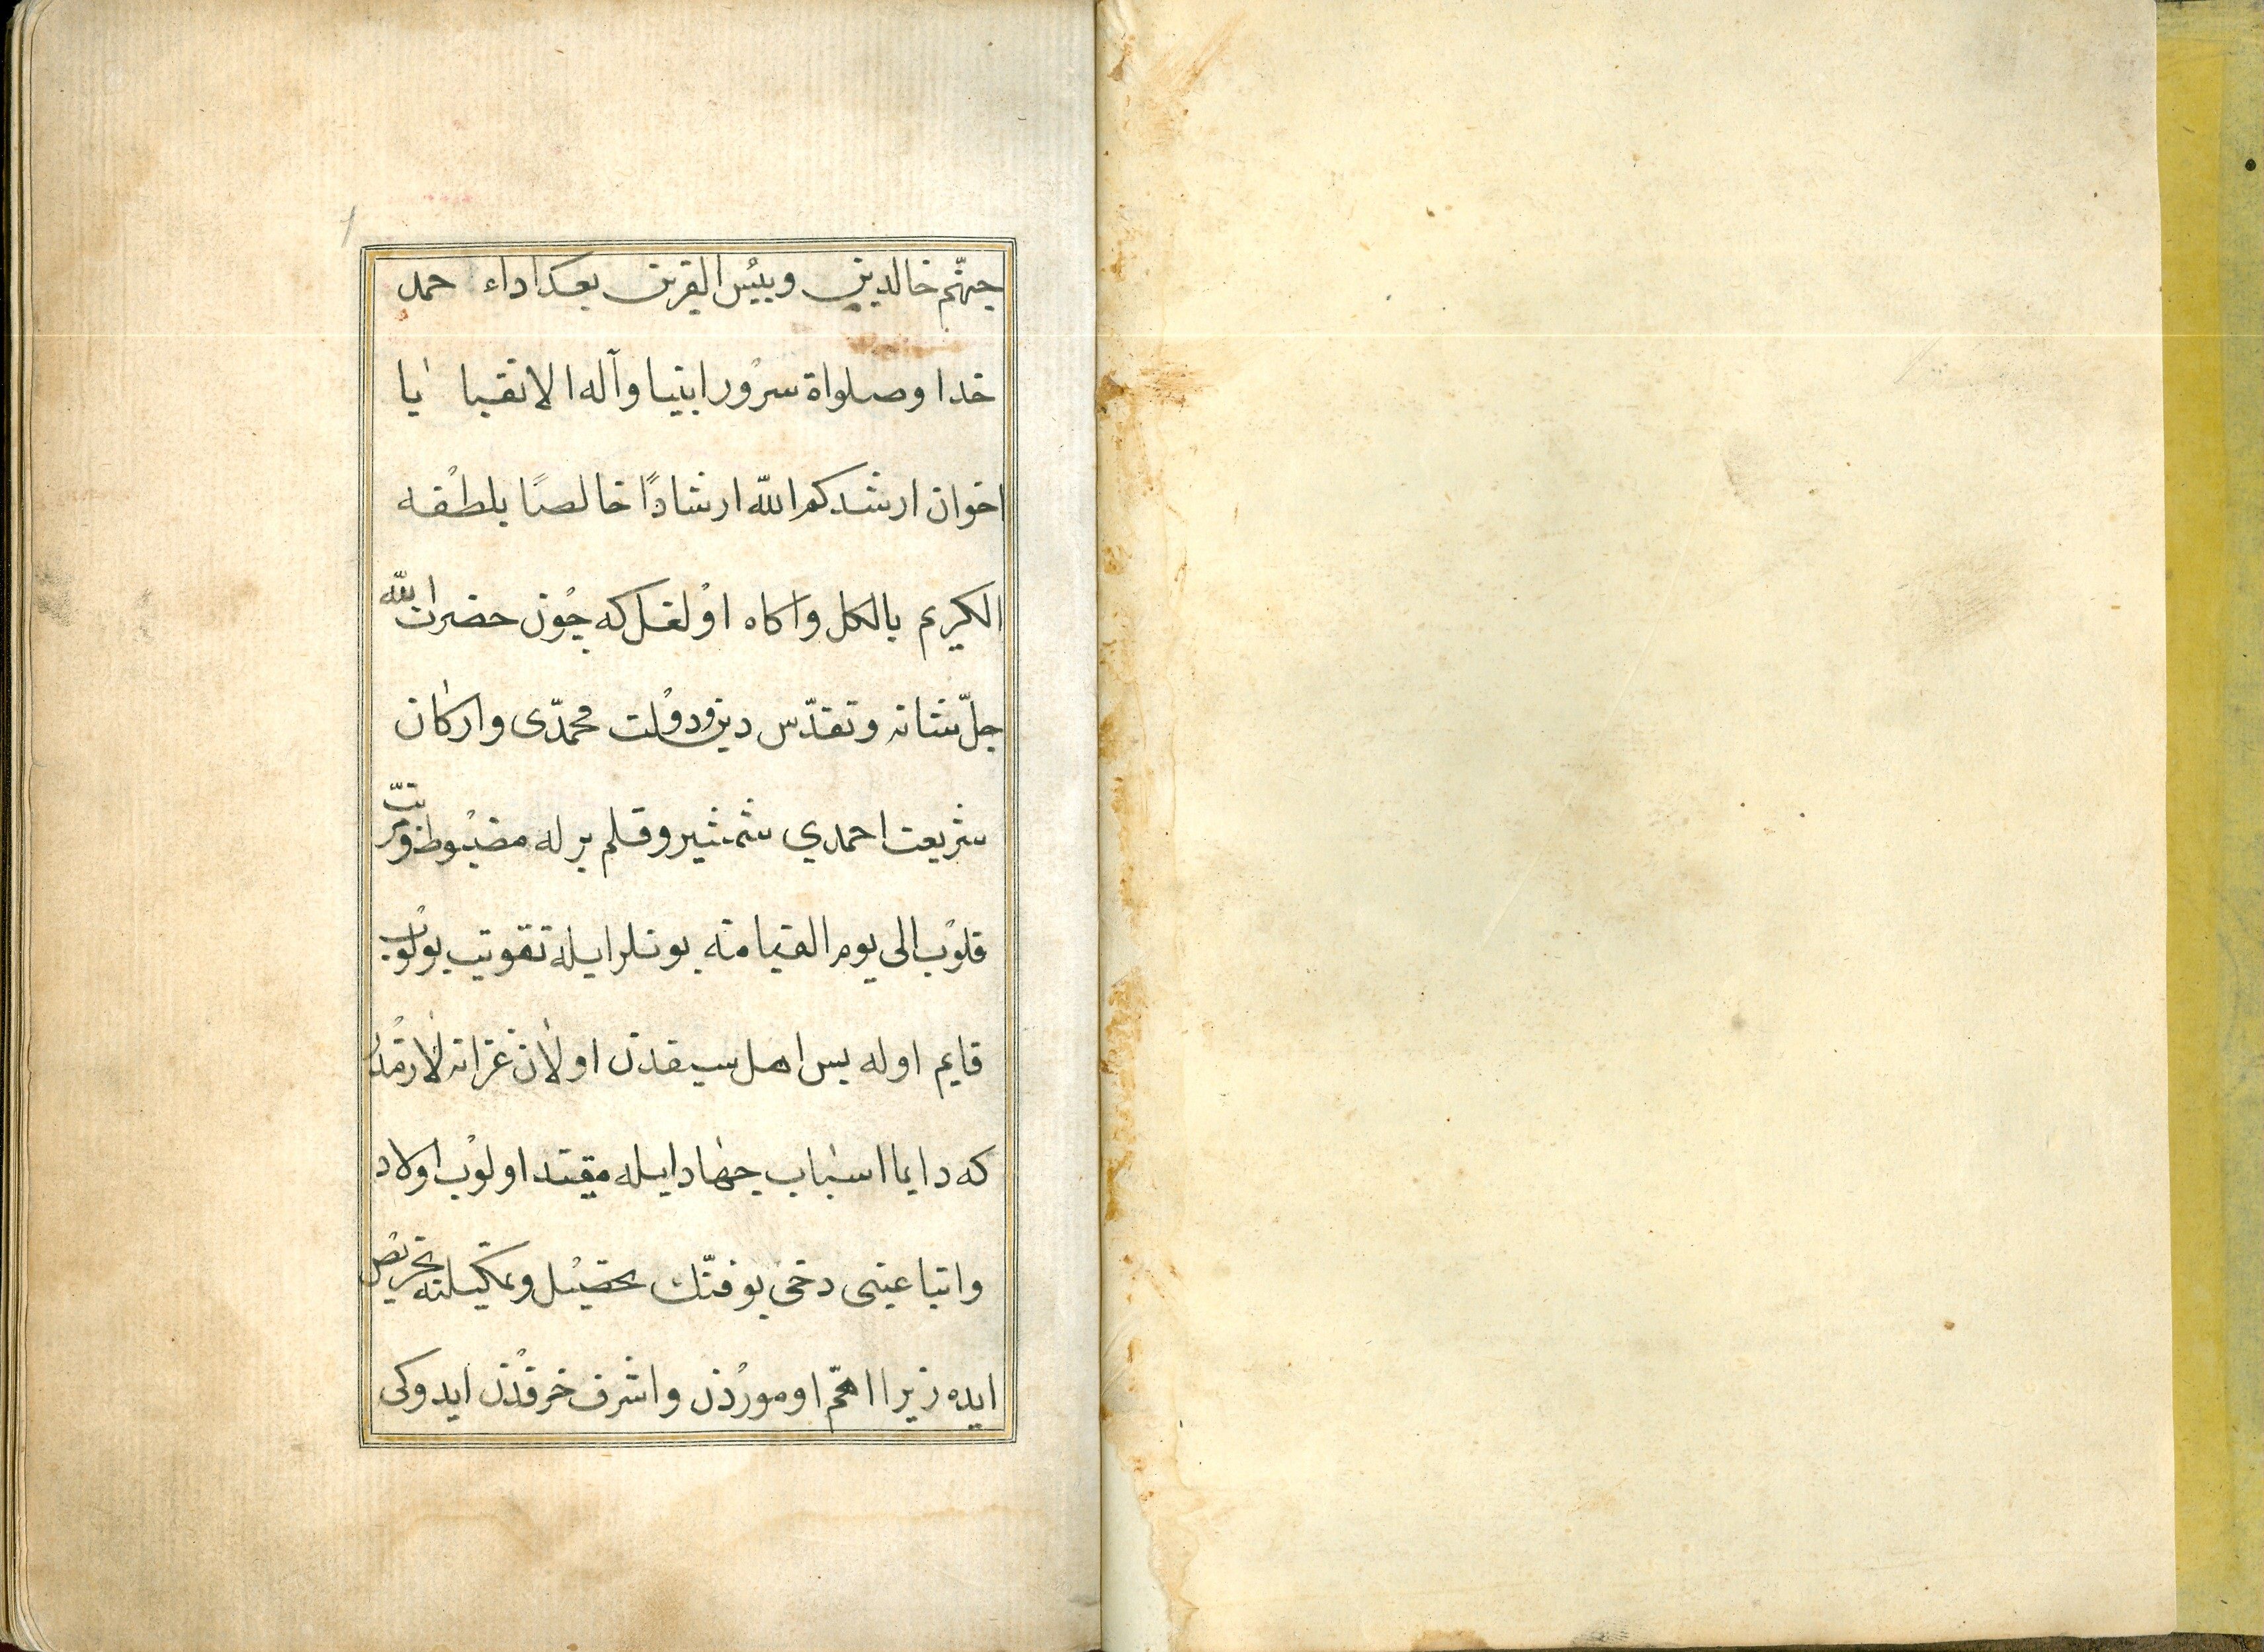 جهنّم خالدين وبيئس القرين بعد اداء حمد
خدا وصلواة سرور انبيا وآله الاتقيا يا
اخوان ارشدكم الله ارشادًا خالصًا بلطفه
الكريم بالكل واكاه اولغل كه چون حضرت الله
جلّ شانه وتقدّس دين ودولت محمدّى واركان
شريعت احمدي شمشير وقلم برله مضبوط ومرتّب
قلوب الى يوم القيامة بونلر ايله تقويت بولوب
قايم اوله پس اهل سيفدن اولان غزاته لازمدر
كه دايما اسباب جهاد ايله مقيّد اولوب اولاد
واتباعينى دخى بو فنّك تحصيل وتكميلنه تحريص
ايده زيرا اهمّ اوموردن واشرف خرفدن ايدوكى